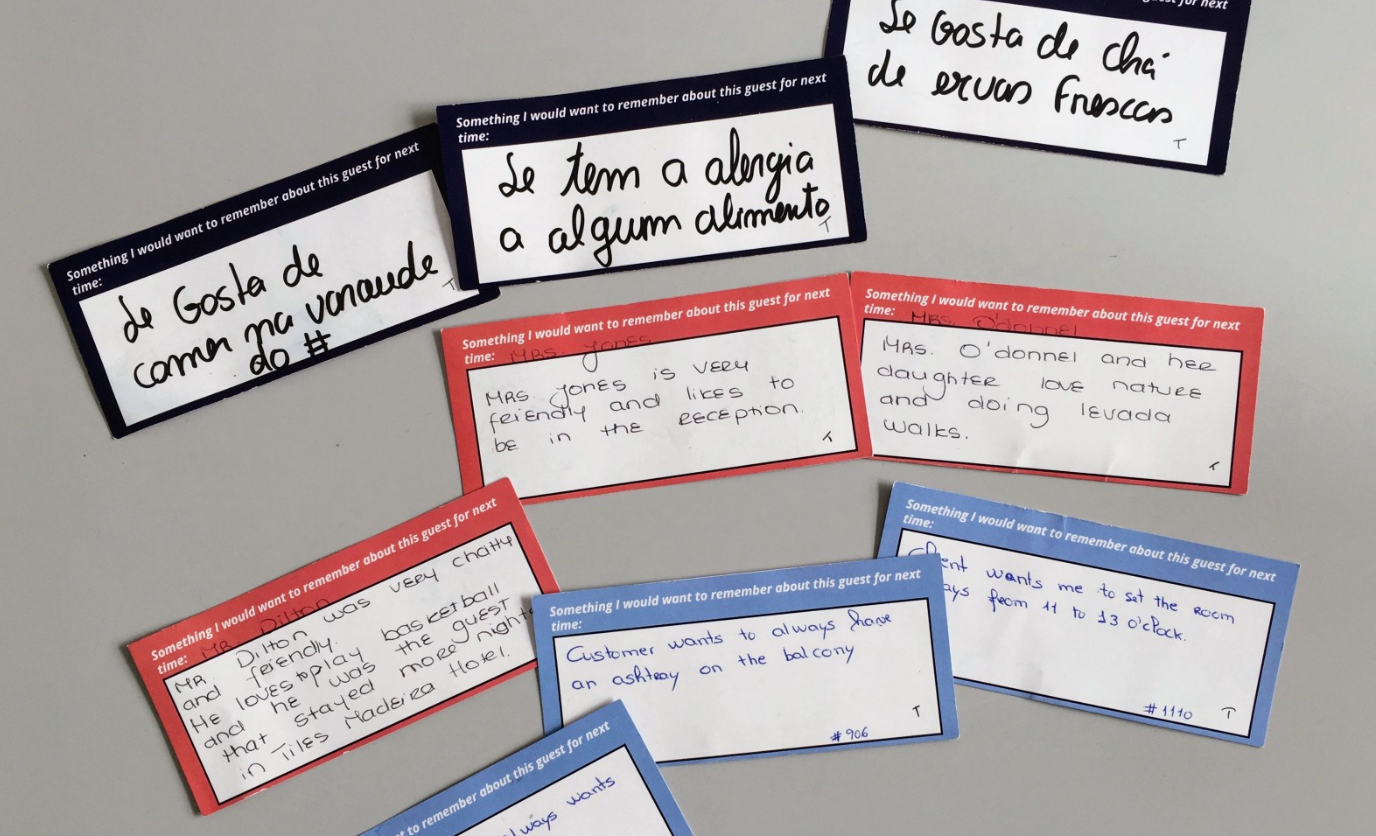 guest for next
Se Gosta de chá
de ervas Frescas
T
Something I would want to remember about this guest for next
time:
Se tem a alergia
a algum alimento
T
Something I would want to remember about this guest for next
time:
Se Gosta de
comer na
do #
T
Something I would want to remember about this guest for next
time: MRS. Jones
MRS. Jones is very
friendly and likes to
be in the reception.
T
Something I would want to remember about this guest for next
time: MRS. O'donnel
MRS. O'donnel and her
daughter love nature
and doing levada
walks.
T
Something I would want to remember about this guest for next
time: MR. Dilton
MR. Dilton was very chatty
and friendly.
He loves to play basketball
and he was the guest
that stayed more nights
in Tiles Madeira Hotel.
Something I would want to remember about this guest for next
time:
Customer wants to always have
an ashtray on the balcony
#906
T
Something I would want to remember about this guest for next
time:
wants me to set the room
from 11 to 13 o'clock.
#1110
T
to remember about this guest for next
always wants